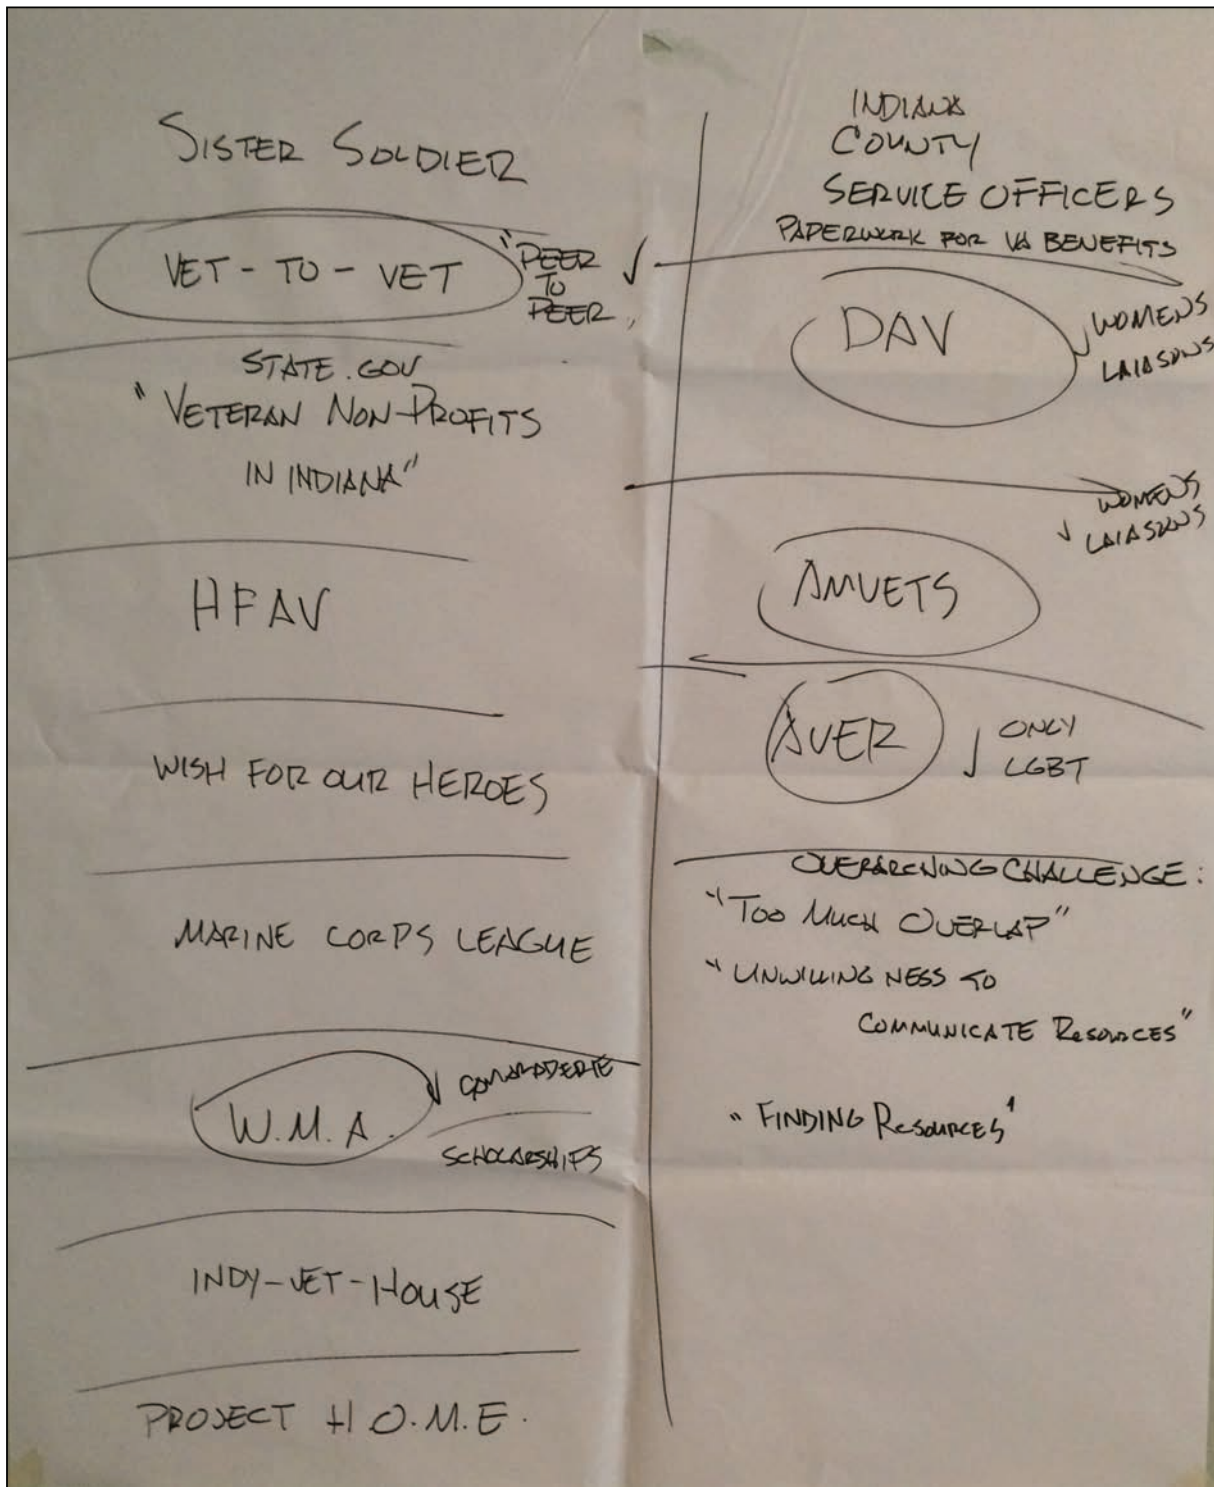 SISTER SOLDIER
VET - TO - VET
"PEER
TO
PEER
STATE.GOV
"VETERAN NON-PROFITS
IN INDIANA"
HFAV
WISH FOR OUR HEROES
MARINE CORPS LEAGUE
W.M.A.
CAMARADERIE
SCHOLARSHIPS
INDY-VET-HOUSE
PROJECT H.O.M.E.
INDIANA
COUNTY
SERVICE OFFICERS
PAPERWORK FOR VA BENEFITS
DAV
WOMENS
LAIASONS
WOMENS
LAIASONS
AMVETS
AVER
ONLY
LGBT
OVERARCHING CHALLENGE:
"TOO MUCH OVERLAP"
"UNWILLINGNESS TO
COMMUNICATE RESOURCES"
"FINDING RESOURCES"